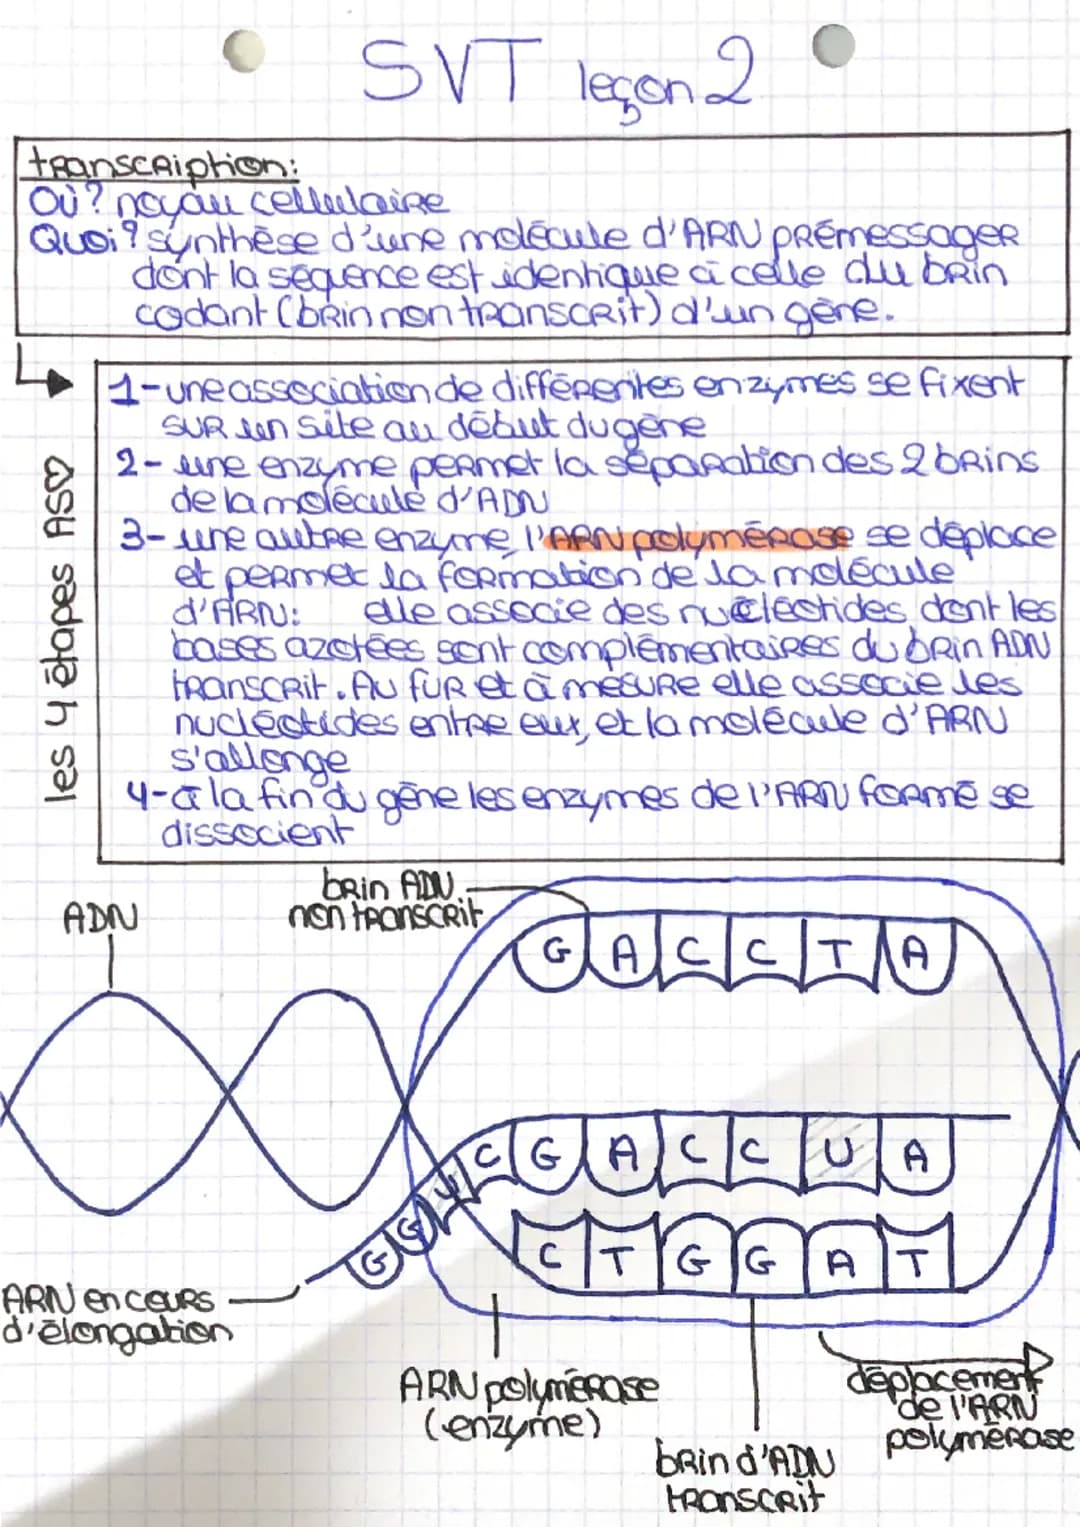 SVT leçon 2
transcription:
Où? noyau cellulaire
Quoi? synthèse d'une molécule d'ARN prémessager
dont la séquence est identique à celle du brin
codant (brin non transcrit) d'un gène.
les 4 étapes ASV
1-une association de différentes enzymes se fixent
sur un site au début du gène
2- une enzyme permet la séparation des 2 brins
de la molécule d'ADN
3- une autre enzyme, l'ARN polymérase se déplace
et permet la formation de la molécule
d'ARN: elle associe des nucléotides, dont les
bases azotées sont complémentaires du brin ADN
transcrit. Au fur et à mesure elle associe les
nucléotides entre eux, et la molécule d'ARN
s'allonge
4-à la fin du gène les enzymes de l'ARN formé se
dissocient
ADN
brin ADN
non transcrit
G A C C T A
G G U C G A C C U A
C T G G A T
ARN en cours
d'élongation
ARN polymérase
(enzyme)
brin d'ADN
transcrit
déplacement
de l'ARN
polymérase